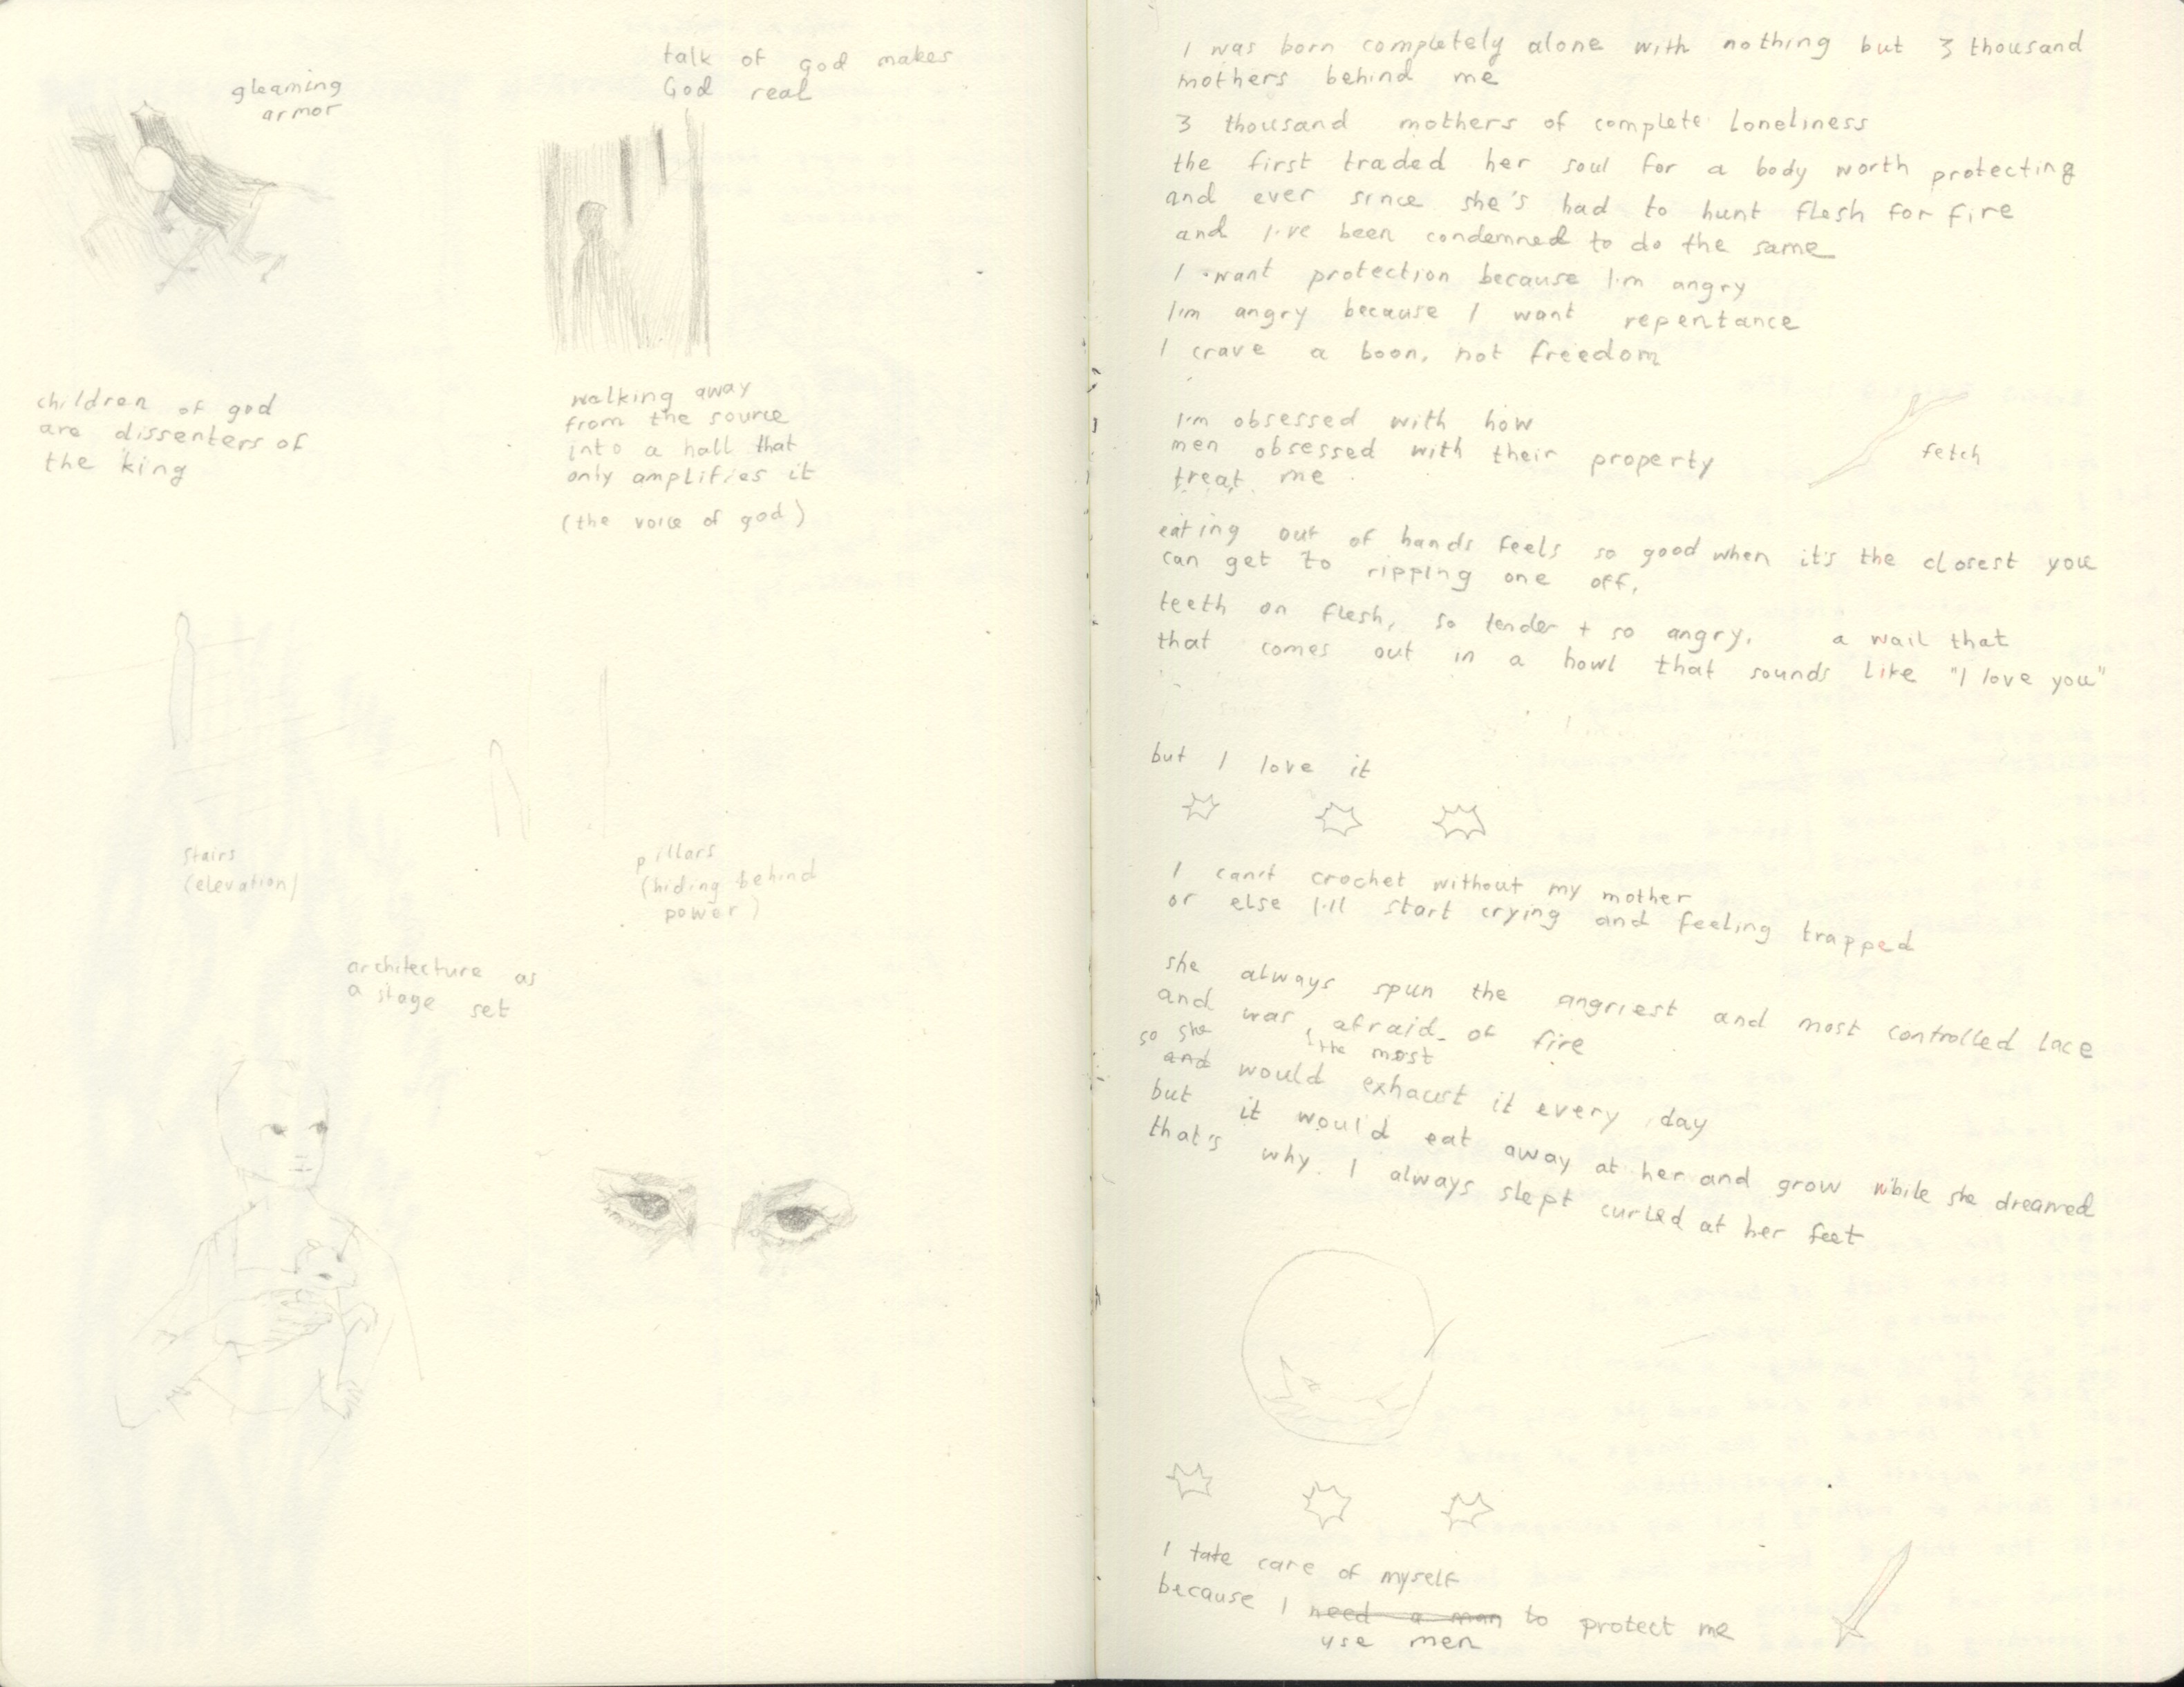 gleaming
armor
talk of god makes
God real
children of god
are dissenters of
the king
walking away
from the source
into a hall that
only amplifies it
(the voice of god)
stairs
(elevation)
pillars
(hiding behind
power)
architecture as
a stage set
I was born completely alone with nothing but 3 thousand
mothers behind me
3 thousand mothers of complete loneliness
the first traded her soul for a body worth protecting
and ever since she's had to hunt flesh for fire
and I've been condemned to do the same
I want protection because I'm angry
I'm angry because I want repentance
I crave a boon, not freedom
I'm obsessed with how
men obsessed with their property
treat me
fetch
eating out of hands feels so good when it's the closest you
can get to ripping one off,
teeth on flesh, so tender + so angry, a wail that
that comes out in a howl that sounds like "I love you"
but I love it
I can't crochet without my mother
or else I'll start crying and feeling trapped
she always spun the angriest and most controlled lace
and was afraid of fire
the most
so she
and would exhaust it every day
but it would eat away at her and grow while she dreamed
that's why I always slept curled at her feet
I take care of myself
because I need a man to protect me
use men